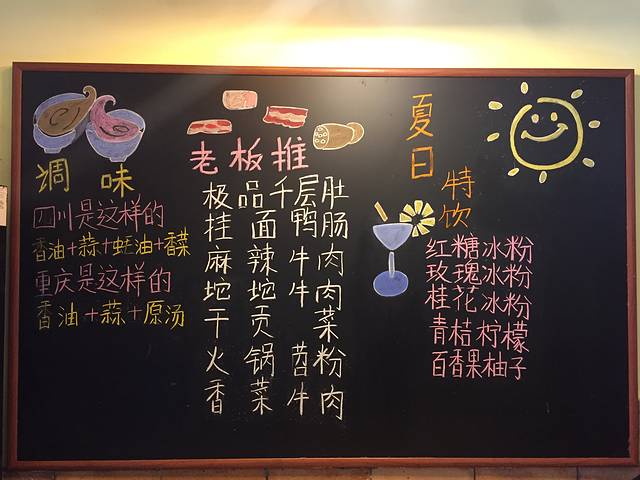 调味
四川是这样的
香油+蒜+蚝油+香菜
重庆是这样的
香油+蒜+原汤
老板推
极品千层肚
挂面鸭肠
麻辣牛肉
坨坨牛肉
干贡菜
火锅苕粉
香菜牛肉
夏日
特饮
红糖冰粉
玫瑰冰粉
桂花冰粉
青桔柠檬
百香果柚子